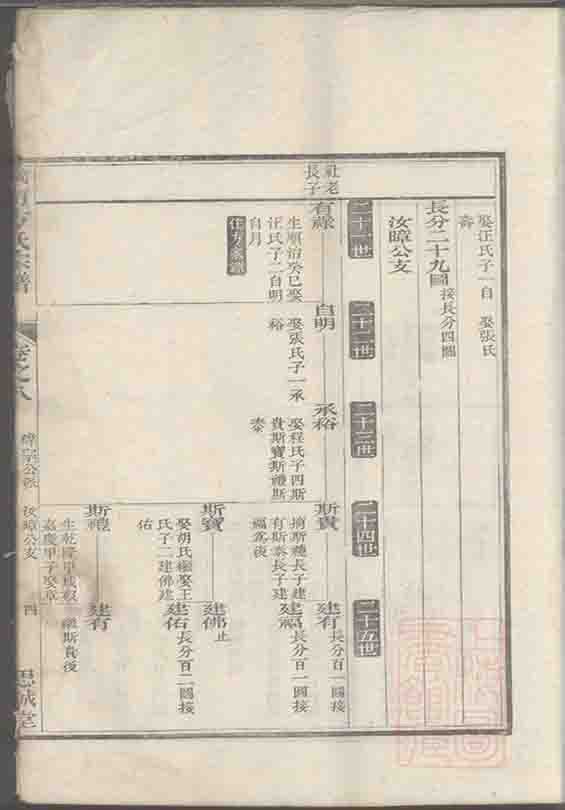 娶汪氏子一自
壽
娶張氏
長分二十九圖 接長分四圖
汝暲公支
二十一世
二十二世
二十三世
二十四世
二十五世
社老
長子
有祿
生順治癸巳娶
汪氏子二自明
自月
自明
娶張氏子一承
裕
承裕
娶程氏子四斯
貴斯寶斯禮斯
泰
斯貴
有斯泰長子建
福為後
建有
長分百一圖接
建福
長分百一圖接
斯寶
娶胡氏繼娶王
氏子二建佛建
佑
建佛
止
建佑
長分百二圖接
斯禮
生乾隆甲戌歿
嘉慶甲子娶章
建有
繼斯貴後
氏宗譜
卷之八
公派
汝暲公支
四
思誠堂